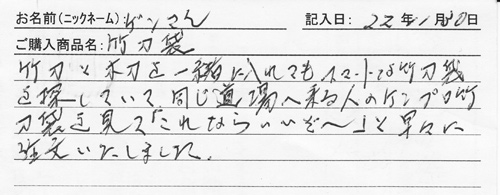 お名前(ニックネーム):ゲンさん 記入日:22年1月30日
ご購入商品名:竹刀袋
竹刀と木刀を一緒に入れてもスマートな竹刀袋
を探していて、同じ道場へ来る人のケンプロ竹
刀袋を見て「これならいいぞ~」と早々に
注文いたしました。